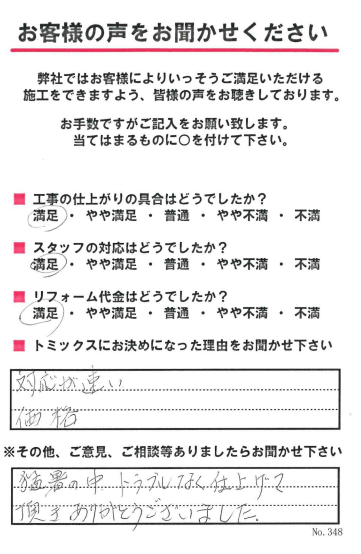 お客様の声をお聞かせください
弊社ではお客様によりいっそうご満足いただける
施工をできますよう、皆様の声をお聴きしております。
お手数ですがご記入をお願い致します。
当てはまるものに○を付けて下さい。
■ 工事の仕上がりの具合はどうでしたか？
満足 ・ やや満足 ・ 普通 ・ やや不満 ・ 不満
■ スタッフの対応はどうでしたか？
満足 ・ やや満足 ・ 普通 ・ やや不満 ・ 不満
■ リフォーム代金はどうでしたか？
満足 ・ やや満足 ・ 普通 ・ やや不満 ・ 不満
■ トミックスにお決めになった理由をお聞かせ下さい
対応が速い
価格
※その他、ご意見、ご相談等ありましたらお聞かせ下さい
猛暑の中 トラブルなく仕上げて
頂き ありがとうございました。
No. 348